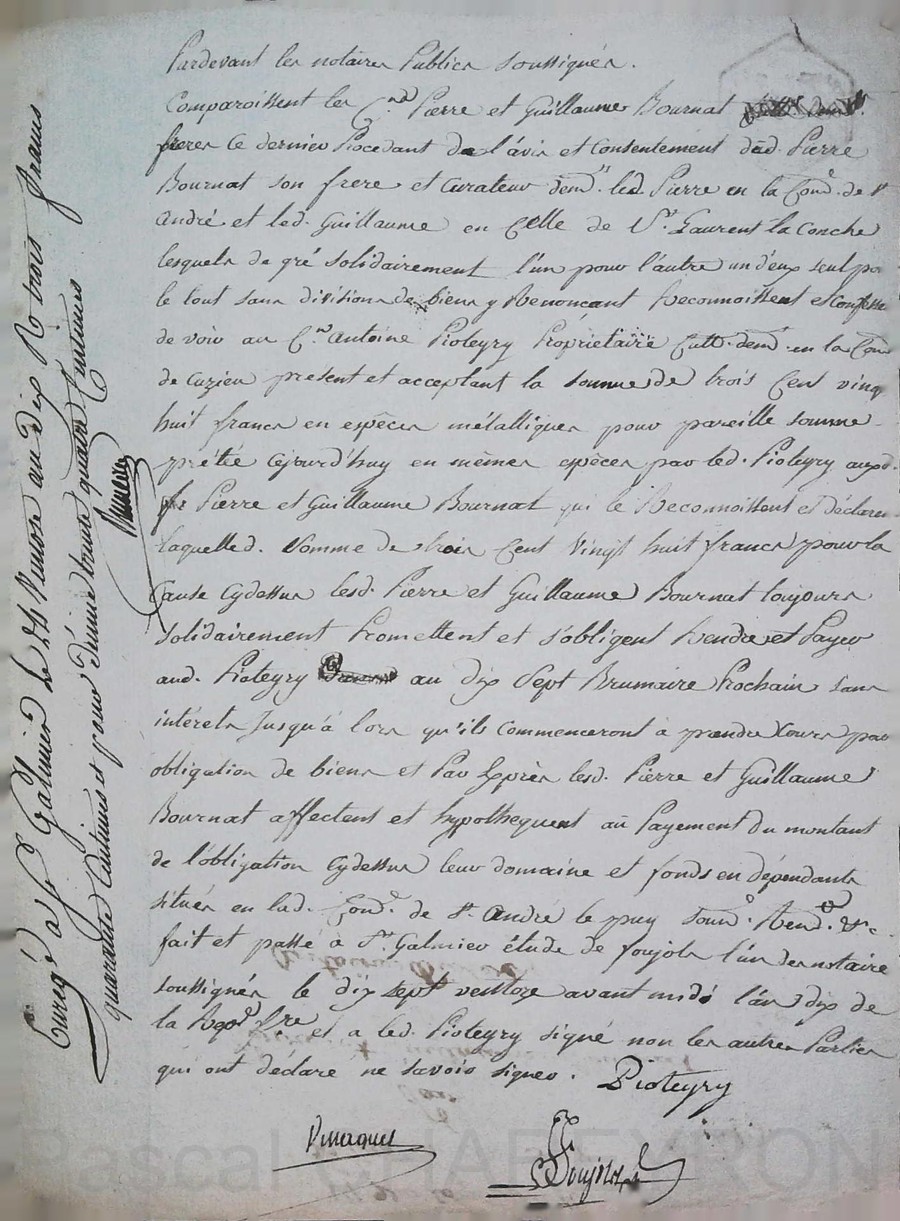 Pardevant les notaires Publics soussignés.
Comparoissent les C.nd Pierre et Guillaume Bournat
freres Ce dernier Procedant de l'avis et Consentement dud. Pierre
Bournat son frere et Curateur dem.t led. Pierre en la Con.e de S.t
andré et led. Guillaume en Celle de S.t Laurent la Conche
lesquels de gré solidairement l'un pour l'autre un d'eux seul po
le tout sans division de biens y Renoncant Reconnoissent et Confesse
devoir au C.en antoine Pioteyry Proprietaire Cult. dem.t en la Con
de Cuzieu present et acceptant la somme de trois Cent ving
huit francs en espêces métalliques pour pareille somme
prétée cejourd'huy en mêmes espèces par led. Pioteyry auxd.
Pierre et Guillaume Bournat qui le Reconnoissent et déclaren
laquelle d. somme de trois Cent vingt huit francs pour la
Cause Cydessus lesd. Pierre et Guillaume Bournat toujours
solidairement Promettent et s'obligent Rendre et Payer
aud. Pioteyry au dix sept Brumaire Prochain sans
intérets Jusqu'à lors qu'ils commenceront à prendre Cours par
obligation de biens et Par Exprès lesd. Pierre et Guillaume
Bournat affectent et hypothequent au Payement du montant
de l'obligation Cydessus leur domaine et fonds en dépendants
situés en lad. Con.e de S.t André le puy Soum.e Ren.d &c.
fait et passé à S.t Galmier étude de Soujols l'un des notaire
soussignés le dix sept ventose avant midi l'an dix de
la Rep.e fr.se et a led. Pioteyry signé non les autres Parties
qui ont déclaré ne savoir signer. Pioteyry
Soujols
Enreg.é à S.t Galmier le 24 Ventose an dix R.o trois francs
quarante Centimes et pour Dixme trente quatre Centimes